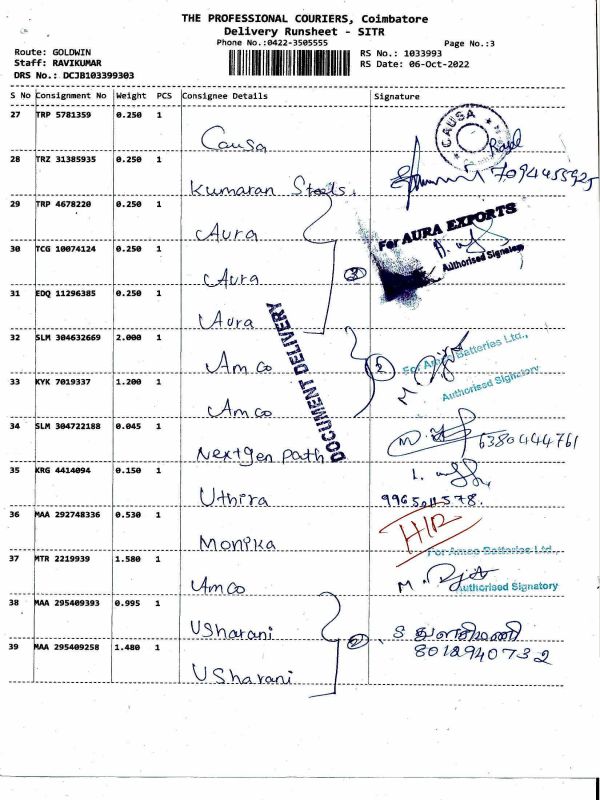 THE PROFESSIONAL COURIERS, Coimbatore
Delivery Runsheet - SITR
Phone No.:0422-3505555 Page No.:3
Route: GOLDWIN RS No.: 1033993
Staff: RAVIKUMAR RS Date: 06-Oct-2022
DRS No.: DCJB103399303
S No Consignment No Weight PCS Consignee Details Signature
27 TRP 5781359 0.250 1 Causa CAUSA
28 TRZ 31385935 0.250 1 Kumaran Steels 7094455925
29 TRP 4678220 0.250 1 Aura For AURA EXPORTS
30 TCG 10074124 0.250 1 Aura 3 Authorised Signatory
31 EDQ 11296385 0.250 1 Aura
DOCUMENT DELIVERY
32 SLM 304632669 2.000 1 Amco 2 For Amco Batteries Ltd.,
33 KYK 7019337 1.200 1 Amco Authorised Signatory
34 SLM 304722188 0.045 1 Nextgen path 6380444761
35 KRG 4414094 0.150 1 Uthira
36 MAA 292748336 0.530 1 Monika
37 MTR 2219939 1.580 1 Amco For Amco Batteries Ltd.,
Authorised Signatory
38 MAA 295409393 0.995 1 USharani 2 S துளசிமணி
8012940732
39 MAA 295409258 1.480 1 USharani